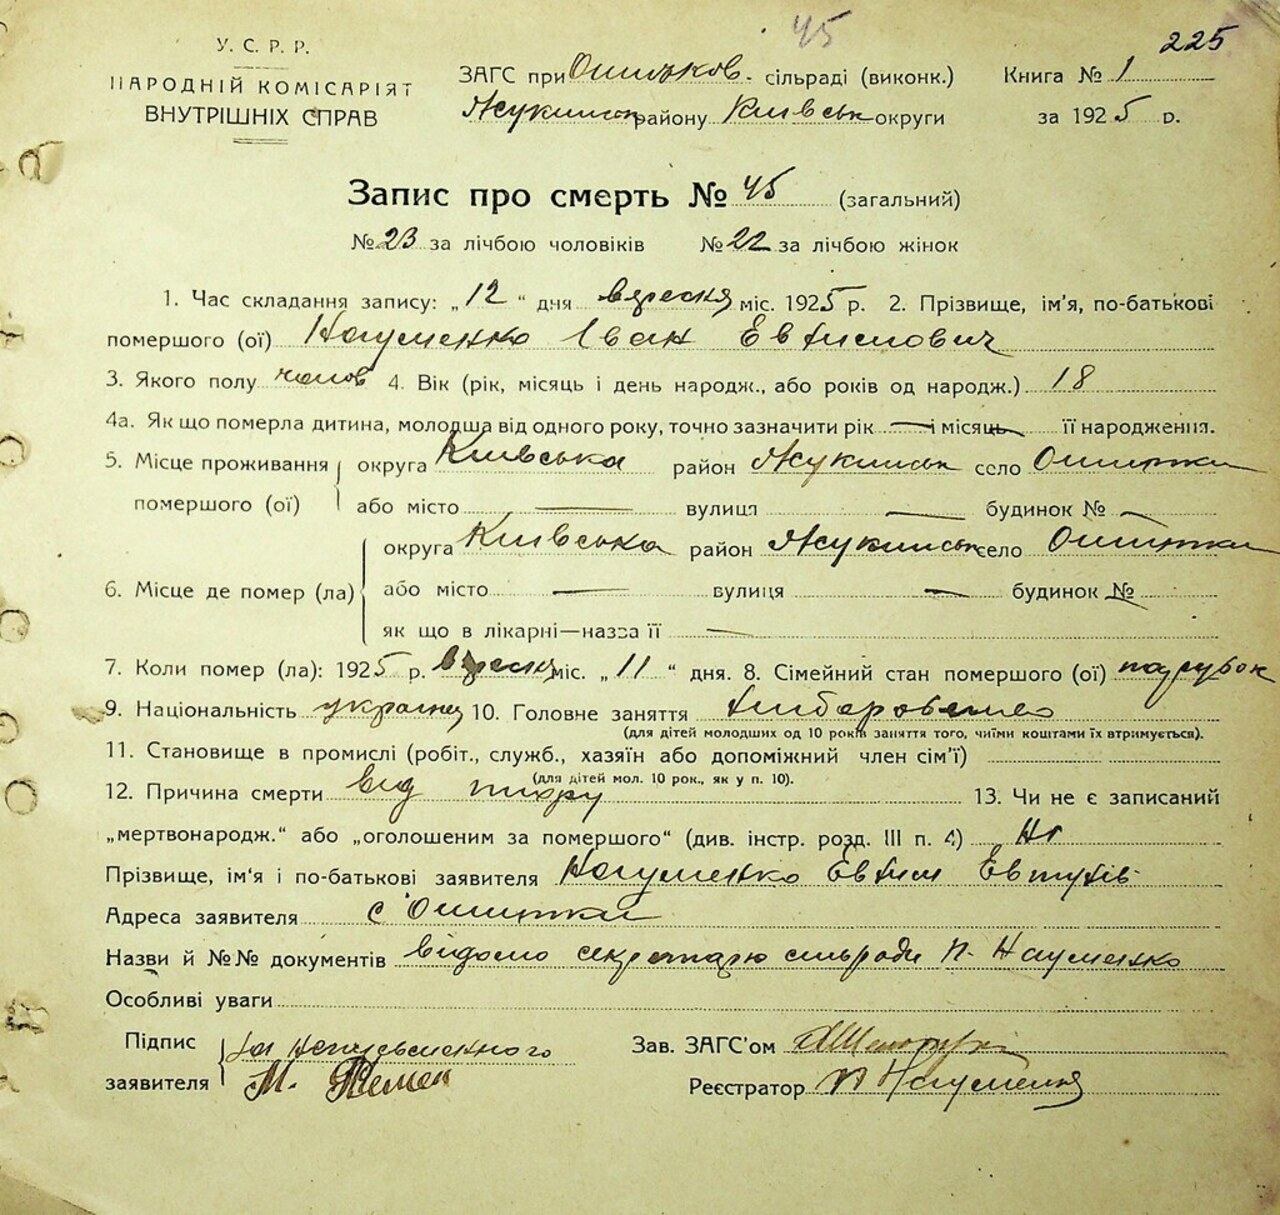 45
225
У. С. Р. Р.
НАРОДНІЙ КОМІСАРІЯТ
ВНУТРІШНІХ СПРАВ
ЗАГС при Ошитков- сільраді (виконк.)
Жукинськ району Київськ округи
Книга № 1
за 1925 р.
Запис про смерть № 45 (загальний)
№ 23 за лічбою чоловіків № 22 за лічбою жінок
1. Час складання запису: „12“ дня вересня міс. 1925 р. 2. Прізвище, ім'я, по-батькові
помершого (ої) Науменко Іван Евтихович
3. Якого полу чолов 4. Вік (рік, місяць і день народж., або років од народж.) 18
4а. Як що померла дитина, молодша від одного року, точно зазначити рік — і місяць — її народження.
5. Місце проживання помершого (ої) округа Київська район Жукинськ село Ошитки
або місто — вулиця — будинок № —
6. Місце де помер (ла) округа Київська район Жукинськ село Ошитки
або місто — вулиця — будинок № —
як що в лікарні—назва її —
7. Коли помер (ла): 1925 р. вересня міс. „11“ дня. 8. Сімейний стан помершого (ої) парубок
9. Національність українц 10. Головне заняття
(для дітей молодших од 10 років заняття того, чиїми коштами їх втримується).
11. Становище в промислі (робіт., служб., хазяїн або допоміжний член сім'ї)
(для дітей мол. 10 рок., як у п. 10).
12. Причина смерти від тифу 13. Чи не є записаний
„мертвонародж.“ або „оголошеним за помершого“ (див. інстр. розд. III п. 4) Ні
Прізвище, ім'я і по-батькові заявителя Науменко Евтих
Адреса заявителя с Ошитки
Назви й №№ документів відомо секретарю сильради П. Науменко
Особливі уваги
Підпис заявителя За неписьменного
М.
Зав. ЗАГС'ом
Реєстратор П Науменко